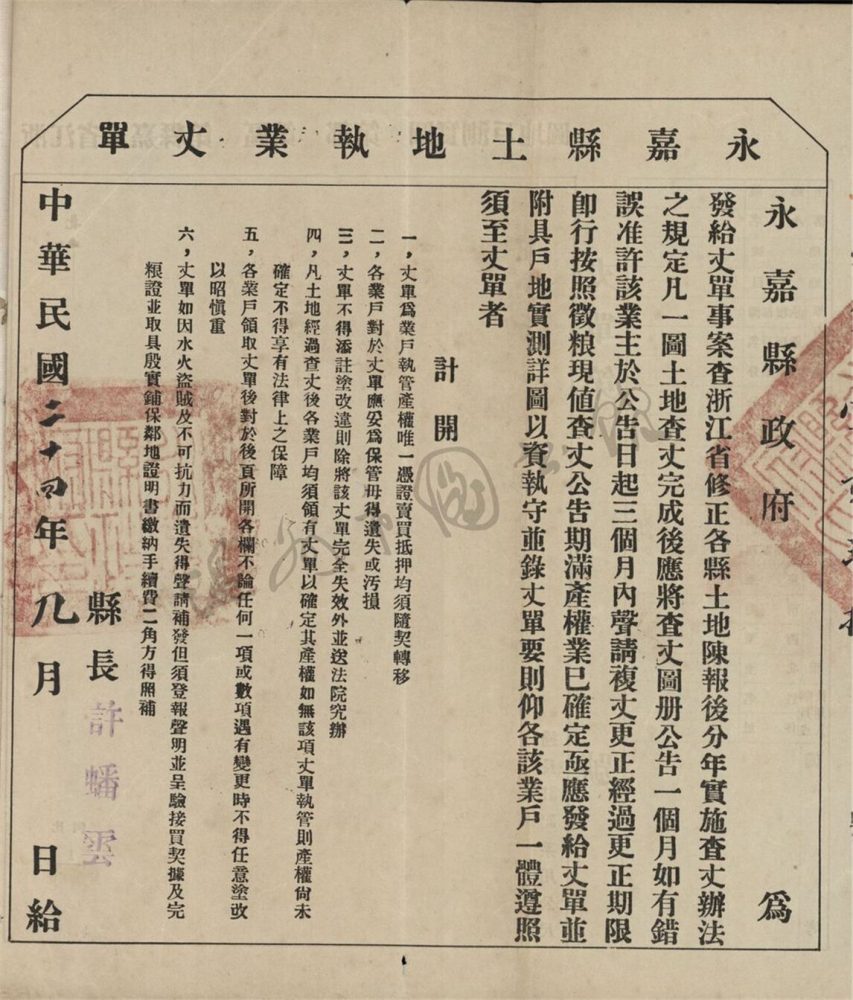 永嘉縣土地執業丈單
永嘉縣政府 為
發給丈單事案查浙江省修正各縣土地陳報後分年實施查丈辦法
之規定凡一圖土地查丈完成後應將查丈圖册公告一個月如有錯
誤准許該業主於公告日起三個月內聲請複丈更正經過更正期限
卽行按照徵粮現値查丈公告期滿產權業已確定亟應發給丈單並
附具戶地實測詳圖以資執守並錄丈單要則仰各該業戶一體遵照
須至丈單者
計開
一，丈單爲業戶執管產權唯一憑證賣買抵押均須隨契轉移
二，各業戶對於丈單應妥爲保管毋得遺失或汚損
三，丈單不得添註塗改違則除將該丈單完全失效外並送法院究辦
四，凡土地經過查丈後各業戶均須領有丈單以確定其產權如無該項丈單執管則產權尙未
確定不得享有法律上之保障
五，各業戶領取丈單後對於後頁所開各欄不論任何一項或數項遇有變更時不得任意塗改
以昭愼重
六，丈單如因水火盜賊及不可抗力而遺失得聲請補發但須登報聲明並呈驗接買契據及完
粮證並取具殷實鋪保鄰地證明書繳納手續費二角方得照補
縣長許蟠雲
中華民國二十四年九月 日給